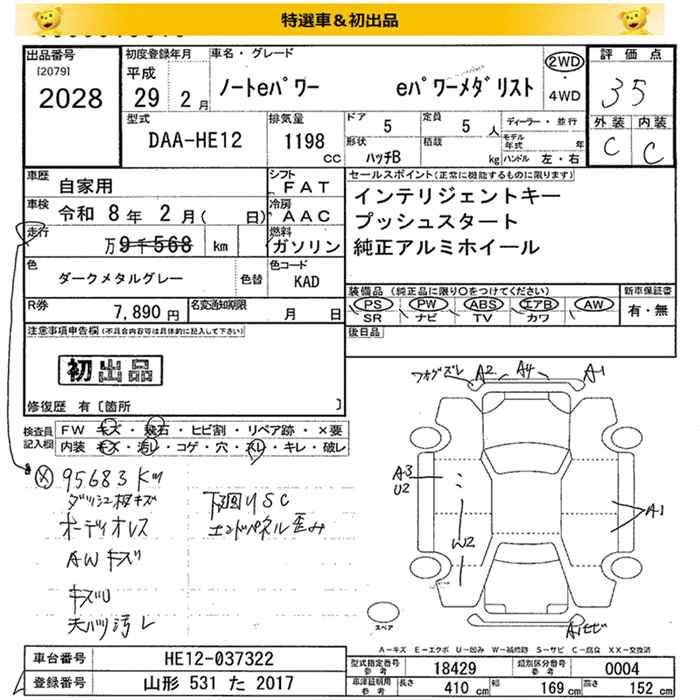 特選車&初出品
出品番号
[2079]
2028
初度登録年月
平成
29 2 月
車名・グレード
ノートeパワー eパワーメダリスト
2WD
4WD
評価点
35
型式
DAA-HE12
排気量
1198 cc
ドア 5
定員 5 人
ディーラー・並行
外装 内装
C C
形状 ハッチB
積載 kg
モデル年式 年
ハンドル 左・右
車歴 自家用
シフト FAT
車検 令和 8年 2月( 日)
冷房 AAC
走行 万 9千568 km
燃料 ガソリン
色 ダークメタルグレー
色替
色コード KAD
R券 7,890 円
名変通知期限 月 日
セールスポイント(正常に機能するものに限ります)
インテリジェントキー
プッシュスタート
純正アルミホイール
装備品 (純正品に限り○をつけてください)
PS PW ABS エアB AW
SR ナビ TV カワ
新車保証書
有・無
後日品
注意事項申告欄(不具合内容等は具体的に記入して下さい)
初出品
修復歴 有〔箇所 〕
検査員記入欄
FW キズ・飛石・ヒビ割・リペア跡・×要
内装 キズ・汚レ・コゲ・穴・スレ・キレ・破レ
95683 Km
ダッシュ板キズ
オーディオレス
AWキズ
キズU
天バリ汚レ
下廻りSC
エンドパネル歪み
フォグズレ A2 A4 A1
A3
U2
A1
W2
スペア
A-キズ E-エクボ U-凹み W-補修跡 S-サビ C-腐食 XX-交換済
車台番号 HE12-037322
登録番号 山形 531 た 2017
型式指定番号 参考 18429
類別区分番号 参考 0004
車検証明用 参考 長さ 410 cm 幅 169 cm 高さ 152 cm